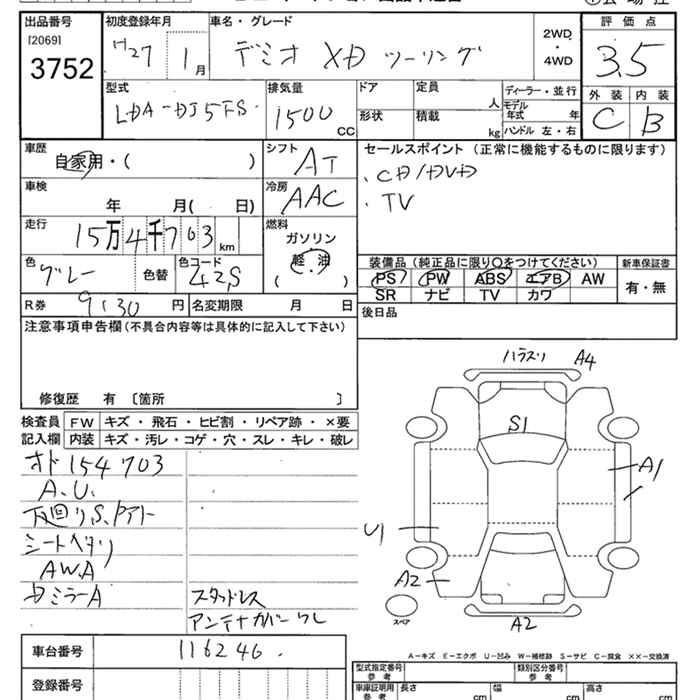 出品番号
[2069]
3752
初度登録年月
H27 1月
車名・グレード
デミオ XD ツーリング
2WD
・
4WD
評価点
3.5
外装 内装
C B
型式
LDA-DJ5FS
排気量
1500 CC
ドア
形状
定員 人
積載 kg
ディーラー・並行
モデル年式 年
ハンドル 左・右
車歴
自家用・( )
シフト
AT
セールスポイント (正常に機能するものに限ります)
・CD/DVD
・TV
車検
年 月( 日)
冷房
AAC
走行
15万4千703km
燃料
ガソリン
軽油
( )
色
グレー
色替
色コード
42S
装備品(純正品に限り○をつけてください)
PS PW ABS エアB AW
SR ナビ TV カワ
新車保証書
有・無
R券 9130円
名変期限 月 日
後日品
注意事項申告欄(不具合内容等は具体的に記入して下さい)
修復歴 有 〔箇所 〕
検査員
記入欄
FW キズ・飛石・ヒビ割・リペア跡・×要
内装 キズ・汚レ・コゲ・穴・スレ・キレ・破レ
オド154703
A.U.
下廻りS、Pアト
シートヘタリ
AWA
Dミラー A
スタッドレス
アンテナカバーワレ
A4
S1
A1
U1
A2
スペア
A2
A-キズ E-エクボ U-凹み W-補修跡 S-サビ C-腐食 ××-交換済
車台番号
116246
登録番号
型式指定番号
参考
類別区分番号
参考
車庫証明用
参考
長さ cm
幅 cm
高さ cm